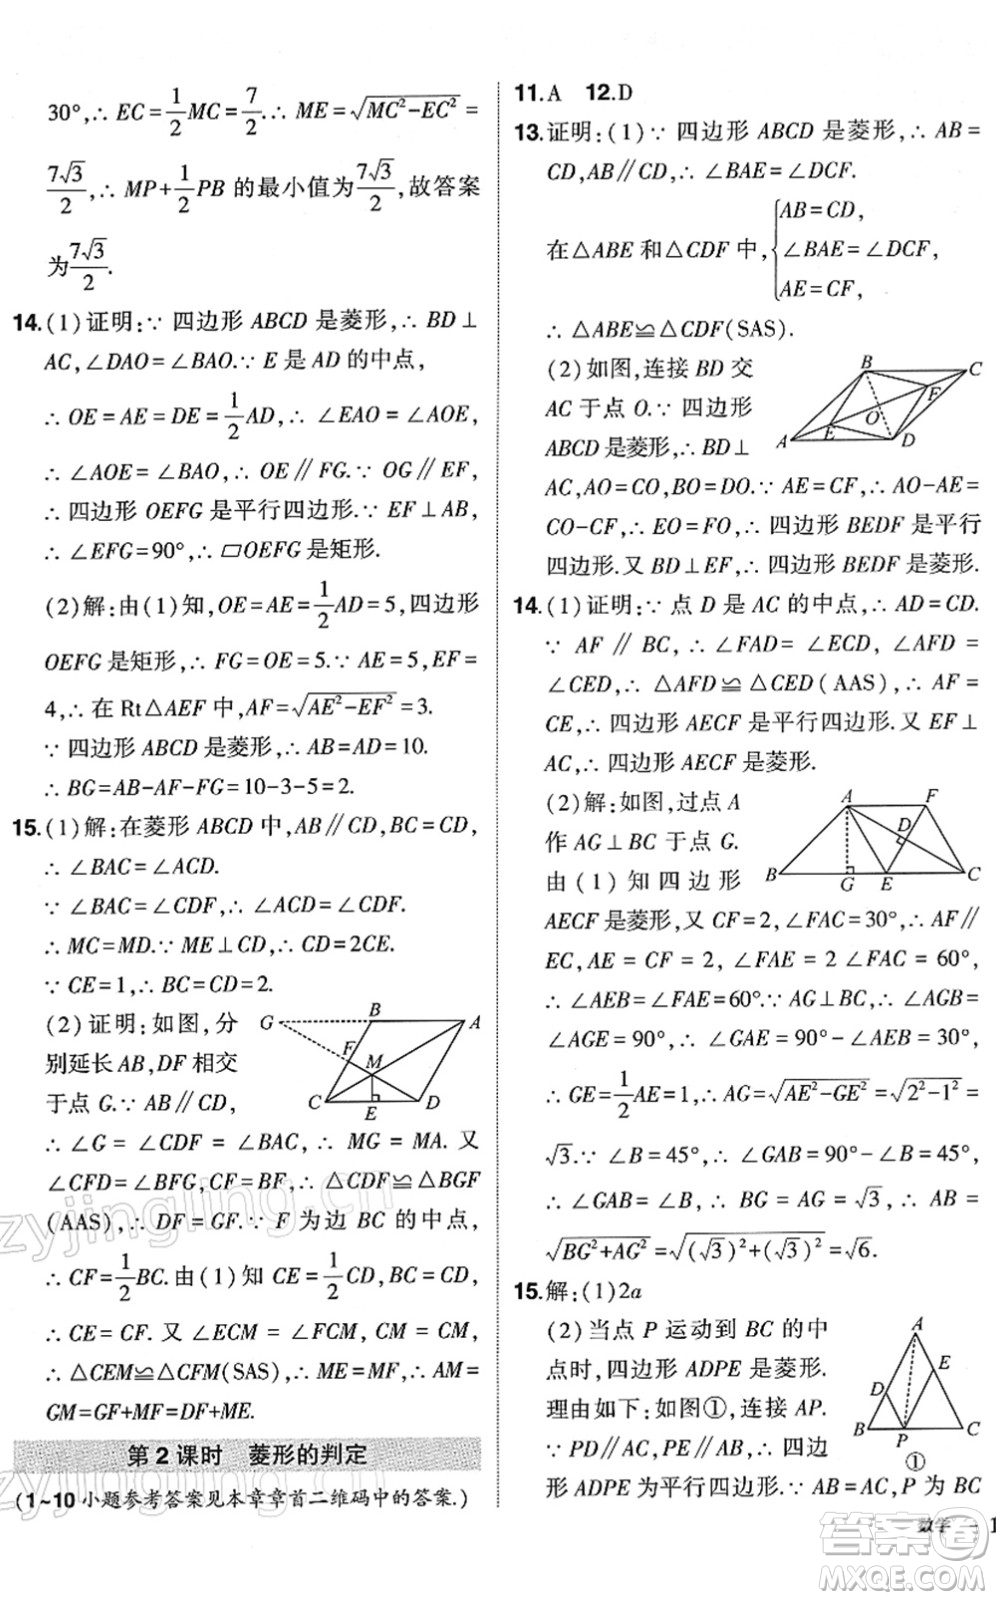 30°,∴ EC=1/2MC=7/2.∴ ME=√(MC²-EC²)=
7√3/2,∴ MP+1/2PB 的最小值为7√3/2,故答案
为7√3/2.
14.(1)证明:∵ 四边形 ABCD 是菱形,∴ BD⊥
AC,∠DAO=∠BAO.∵ E 是 AD 的中点,
∴ OE=AE=DE=1/2AD,∴ ∠EAO=∠AOE,
∴ ∠AOE=∠BAO,∴ OE∥FG.∵ OG∥EF,
∴ 四边形 OEFG 是平行四边形.∵ EF⊥AB,
∴ ∠EFG=90°,∴ ▱OEFG 是矩形.
(2)解:由(1)知,OE=AE=1/2AD=5,四边形
OEFG 是矩形,∴ FG=OE=5.∵ AE=5,EF=
4,∴ 在 Rt△AEF 中,AF=√(AE²-EF²)=3.
∵ 四边形 ABCD 是菱形,∴ AB=AD=10.
∴ BG=AB-AF-FG=10-3-5=2.
15.(1)解:在菱形 ABCD 中,AB∥CD,BC=CD,
∴ ∠BAC=∠ACD.
∵ ∠BAC=∠CDF,∴ ∠ACD=∠CDF.
∴ MC=MD.∵ ME⊥CD,∴ CD=2CE.
∵ CE=1,∴ BC=CD=2.
(2)证明:如图,分
别延长 AB,DF 相交
于点 G.∵ AB∥CD,
G B A
F
M
C E D
∴ ∠G = ∠CDF = ∠BAC,∴ MG = MA. 又
∠CFD=∠BFG,CF=BF,∴ △CDF≌△BGF
(AAS),∴ DF=GF.∵ F 为边 BC 的中点,
∴ CF=1/2BC.由(1)知 CE=1/2CD,BC=CD,
∴ CE = CF. 又 ∠ECM = ∠FCM, CM = CM,
∴ △CEM≌△CFM(SAS),∴ ME=MF,∴ AM=
GM=GF+MF=DF+ME.
第2课时 菱形的判定
(1~10小题参考答案见本章章首二维码中的答案.)
11.A 12.D
13.证明:(1)∵ 四边形 ABCD 是菱形,∴ AB=
CD,AB∥CD,∴ ∠BAE=∠DCF.
在△ABE 和△CDF 中,{AB=CD,
∠BAE=∠DCF,
AE=CF,
∴ △ABE≌△CDF(SAS).
(2)如图,连接 BD 交
AC 于点 O.∵ 四边形
ABCD 是菱形,∴ BD⊥
B C
F
O
E
A D
AC,AO=CO,BO=DO.∵ AE=CF,∴ AO-AE=
CO-CF,∴ EO=FO,∴ 四边形 BEDF 是平行
四边形.又 BD⊥EF,∴ 四边形 BEDF 是菱形.
14.(1)证明:∵ 点 D 是 AC 的中点,∴ AD=CD.
∵ AF∥BC,∴ ∠FAD=∠ECD,∠AFD=
∠CED,∴ △AFD≌△CED(AAS),∴ AF=
CE,∴ 四边形 AECF 是平行四边形.又 EF⊥
AC,∴ 四边形 AECF 是菱形.
(2)解:如图,过点 A
作 AG⊥BC 于点 G.
由(1)知四边形
A F
D
B G E C
AECF 是菱形,又 CF=2,∠FAC=30°,∴ AF∥
EC,AE = CF = 2, ∠FAE = 2 ∠FAC = 60°,
∴ ∠AEB=∠FAE=60°.∵ AG⊥BC,∴ ∠AGB=
∠AGE=90°,∴ ∠GAE=90°-∠AEB=30°,
∴ GE=1/2AE=1,∴ AG=√(AE²-GE²)=√(2²-1²)=
√3.∵ ∠B=45°,∴ ∠GAB=90°-∠B=45°,
∴ ∠GAB=∠B,∴ BG=AG=√3,∴ AB=
√(BG²+AG²)=√((√3)²+(√3)²)=√6.
15.解:(1)2a
(2)当点 P 运动到 BC 的中
点时,四边形 ADPE 是菱形.
理由如下:如图①,连接 AP.
∵ PD∥AC,PE∥AB,∴ 四边
A
E
D
B P C
①
形 ADPE 为平行四边形.∵ AB=AC,PB=PC
数学 一 1
zyjingling.cn
zyjingling.cn
答案圈
MXQE.COM